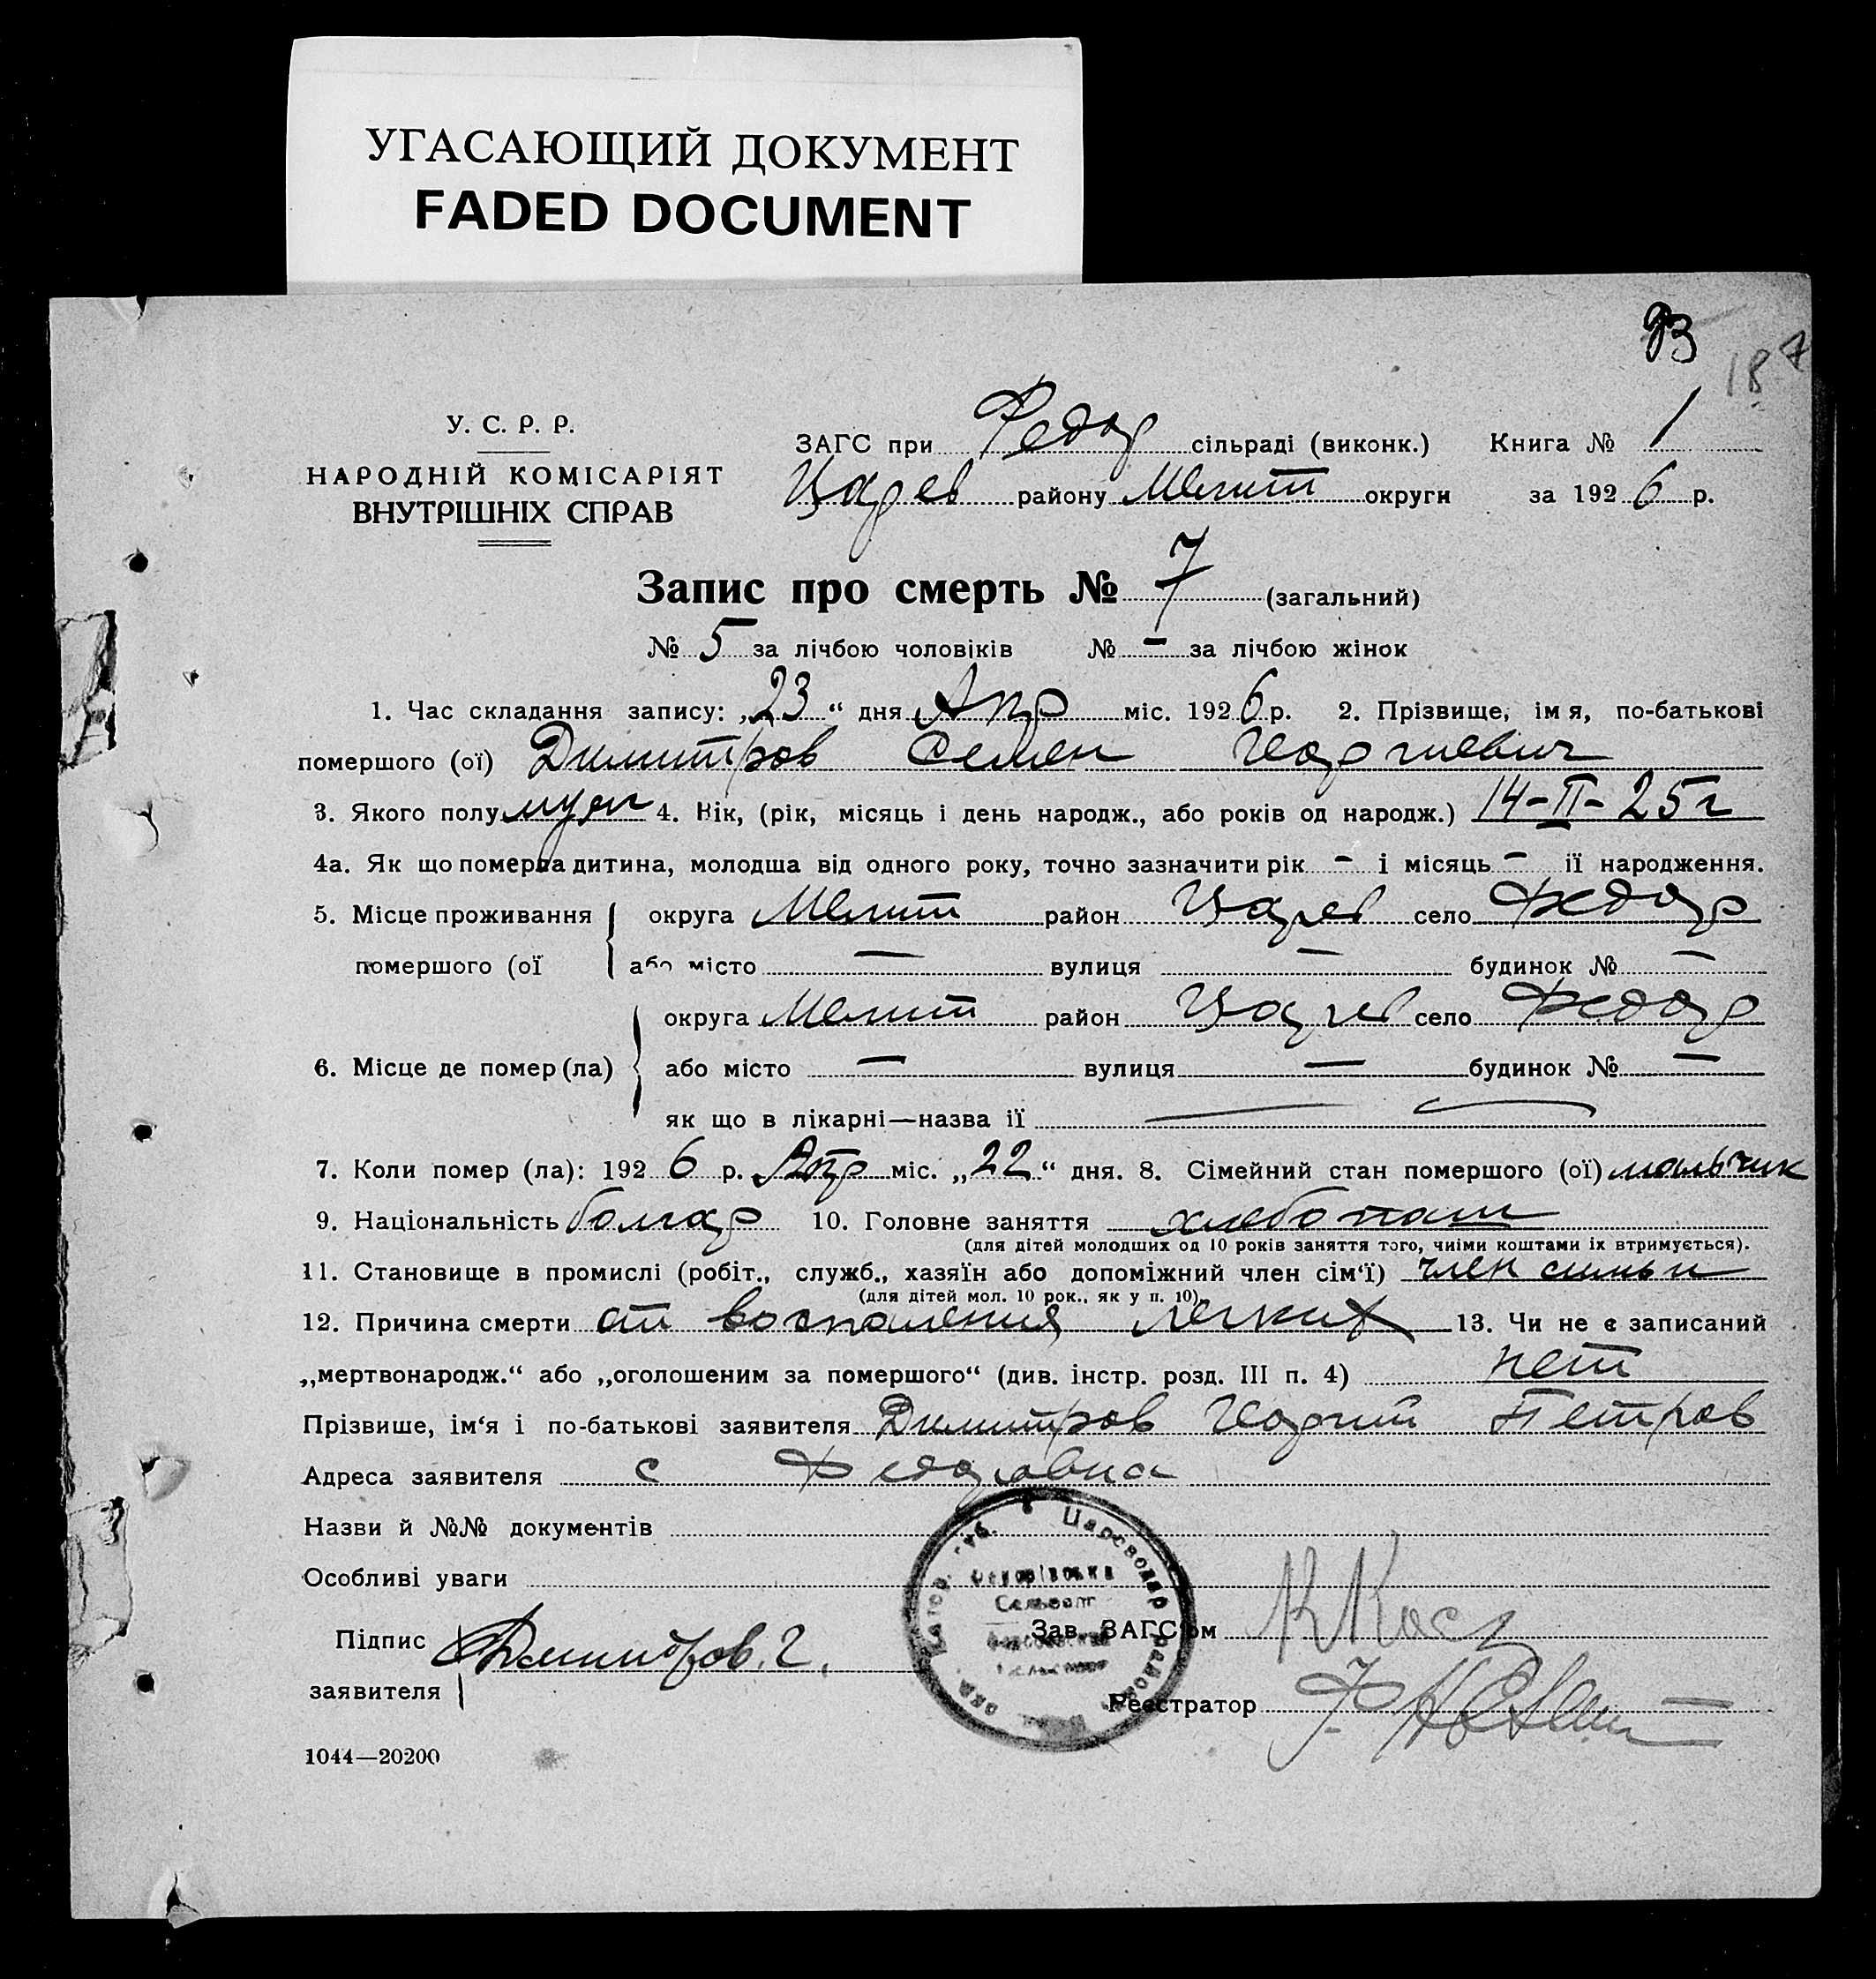 УГАСАЮЩИЙ ДОКУМЕНТ
FADED DOCUMENT
93
187
У. С. Р. Р.
НАРОДНІЙ КОМІСАРІЯТ
ВНУТРІШНІХ СПРАВ
ЗАГС при Федор сільраді (виконк.) Книга № 1
Царев району Мелит округи за 1926 р.
Запис про смерть № 7 (загальний)
№ 5 за лічбою чоловіків № - за лічбою жінок
1. Час складання запису: „23“ дня Апр міс. 1926 р. 2. Прізвище, імя, по-батькові
помершого (ої) Димитров Семен Георгиевич
3. Якого полу муж 4. Вік, (рік, місяць і день народж., або років од народж.) 14-II-25 г
4а. Як що померла дитина, молодша від одного року, точно зазначити рік - і місяць - її народження.
5. Місце проживання округа Мелит район Царев село Федор
помершого (ої або місто — вулиця — будинок № —
округа Мелит район Царев село Федор
6. Місце де помер (ла) або місто — вулиця — будинок № —
як що в лікарні—назва її —
7. Коли помер (ла): 1926 р. Апр міс. „22“ дня. 8. Сімейний стан помершого (ої) мальчик
9. Національність болгар 10. Головне заняття хлебопаш
(для дітей молодших од 10 років заняття того, чиїми коштами їх втримується).
11. Становище в промислі (робіт., служб., хазяїн або допоміжний член сім'ї) член симьи
(для дітей мол. 10 рок., як у п. 10)
12. Причина смерти от воспаления легких 13. Чи не є записаний
„мертвонародж.“ або „оголошеним за помершого“ (див. інстр. розд. III п. 4) нет
Прізвише, ім'я і по-батькові заявителя Димитров Георгий Петров
Адреса заявителя с Федоровка
Назви й №№ документів
Особливі уваги
Цареводар район
Федорівська
Сельсовет
Підпис заявителя Димитров. Г.
Зав. ЗАГС'ом
Реєстратор
1044—20200